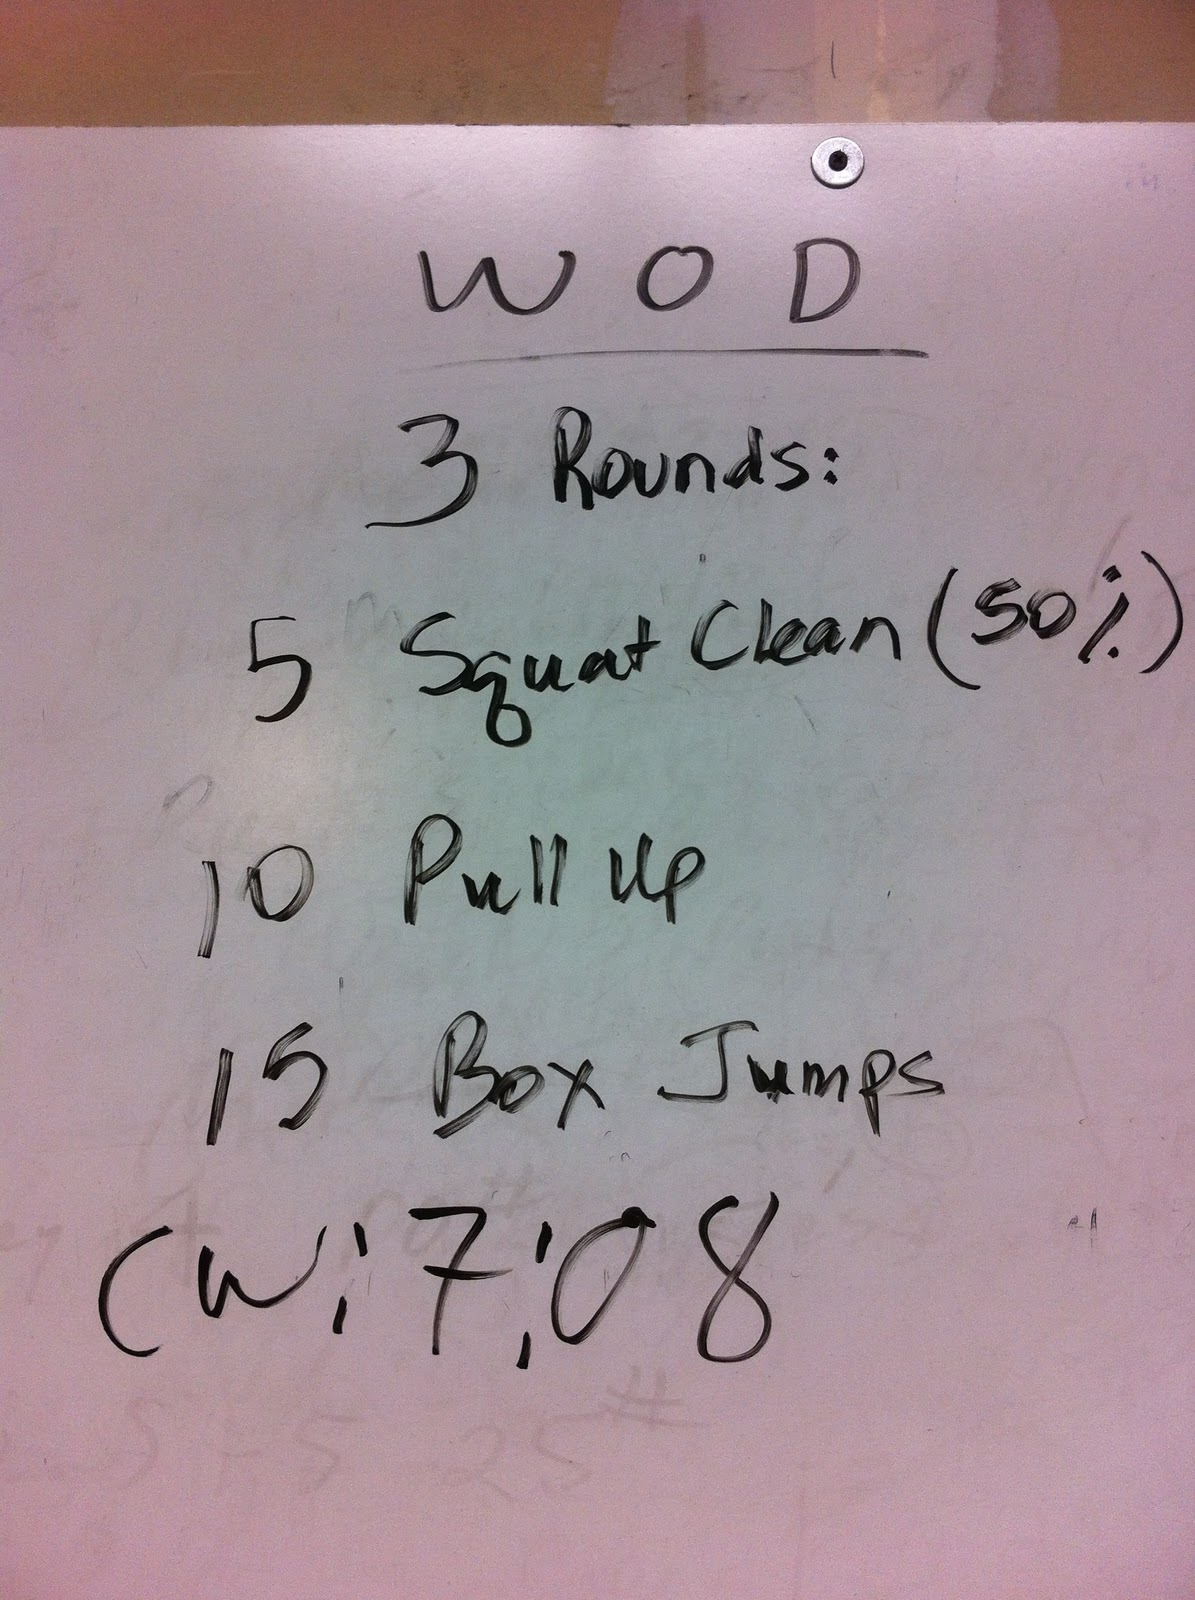 W O D
3 Rounds:
5 Squat Clean (50%)
10 Pull Up
15 Box Jumps
CW: 7:08